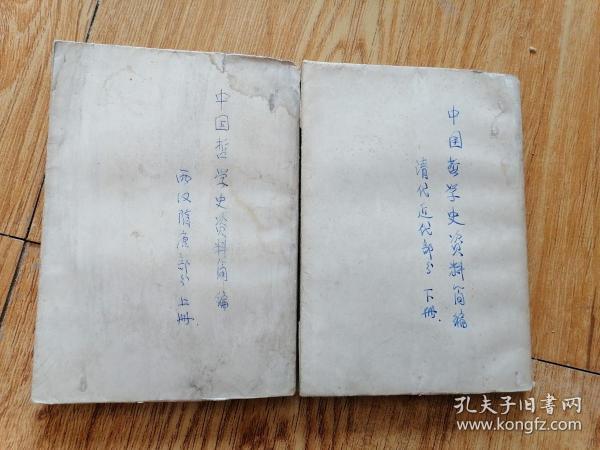 中国哲学史资料简编
两汉隋唐部分 上册.
中国哲学史资料简编
清代近代部分 下册.
孔夫子旧书网
www.kongfz.com